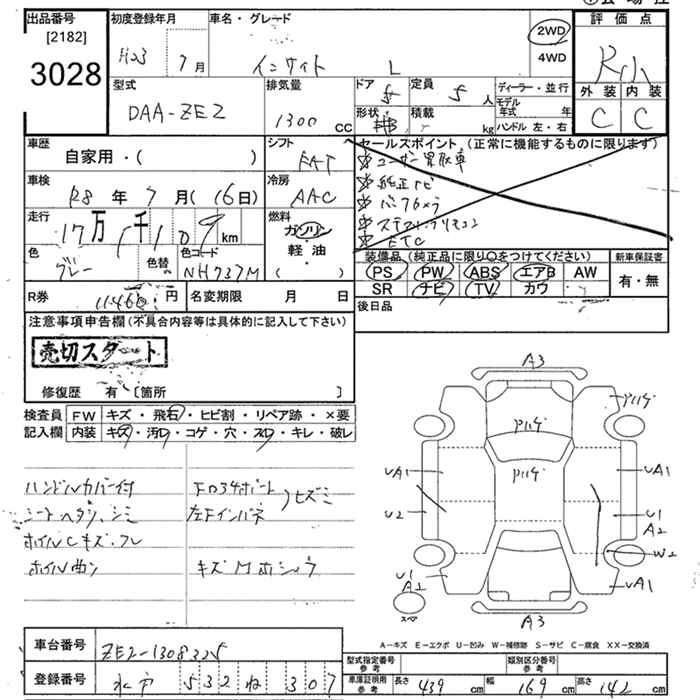 出品番号
[2182]
3028
初度登録年月
H23 7月
車名・グレード
インサイト L
2WD
4WD
評価点
R小
外装 内装
C C
型式
DAA-ZE2
排気量
1300 CC
ドア 5
定員 5 人
形状
積載 kg
ディーラー・並行
モデル年式 年
ハンドル 左・右
車歴
自家用・( )
シフト
FAT
セールスポイント (正常に機能するものに限ります)
☆ユーザー買取車
☆純正ナビ
☆バックカメラ
☆ステアリモコン
☆ETC
車検
R8 年 7 月 (16日)
冷房
AAC
走行
17万1千109 km
燃料
ガソリン
軽・油
( )
色
グレー
色替
色コード
NH737M
装備品 (純正品に限り○をつけてください)
PS PW ABS エアB AW
SR ナビ TV カワ
新車保証書
有・無
R券
11460 円
名変期限 月 日
後日品
注意事項申告欄 (不具合内容等は具体的に記入して下さい)
売切スタート
修復歴 有〔箇所 〕
検査員記入欄
FW キズ・飛石・ヒビ割・リペア跡・×要
内装 キズ・汚れ・コゲ・穴・スレ・キレ・破レ
ハンドルカバー付
シートヘタリ、シミ
ホイルCキズ・フレ
ホイル曲り
左Fインパネ
ヒズミ
A3
UA1
U2
U1
A2
UA1
U1
A2
W2
UA1
A3
スペア
A-キズ E-エクボ U-凹み W-補修跡 S-サビ C-腐食 XX-交換済
車台番号
ZE2-1308325
登録番号
水戸 532 ね 307
型式指定番号
参考
類別区分番号
参考
車庫証明用
参考
長さ 439 cm
幅 169 cm
高さ 142 cm